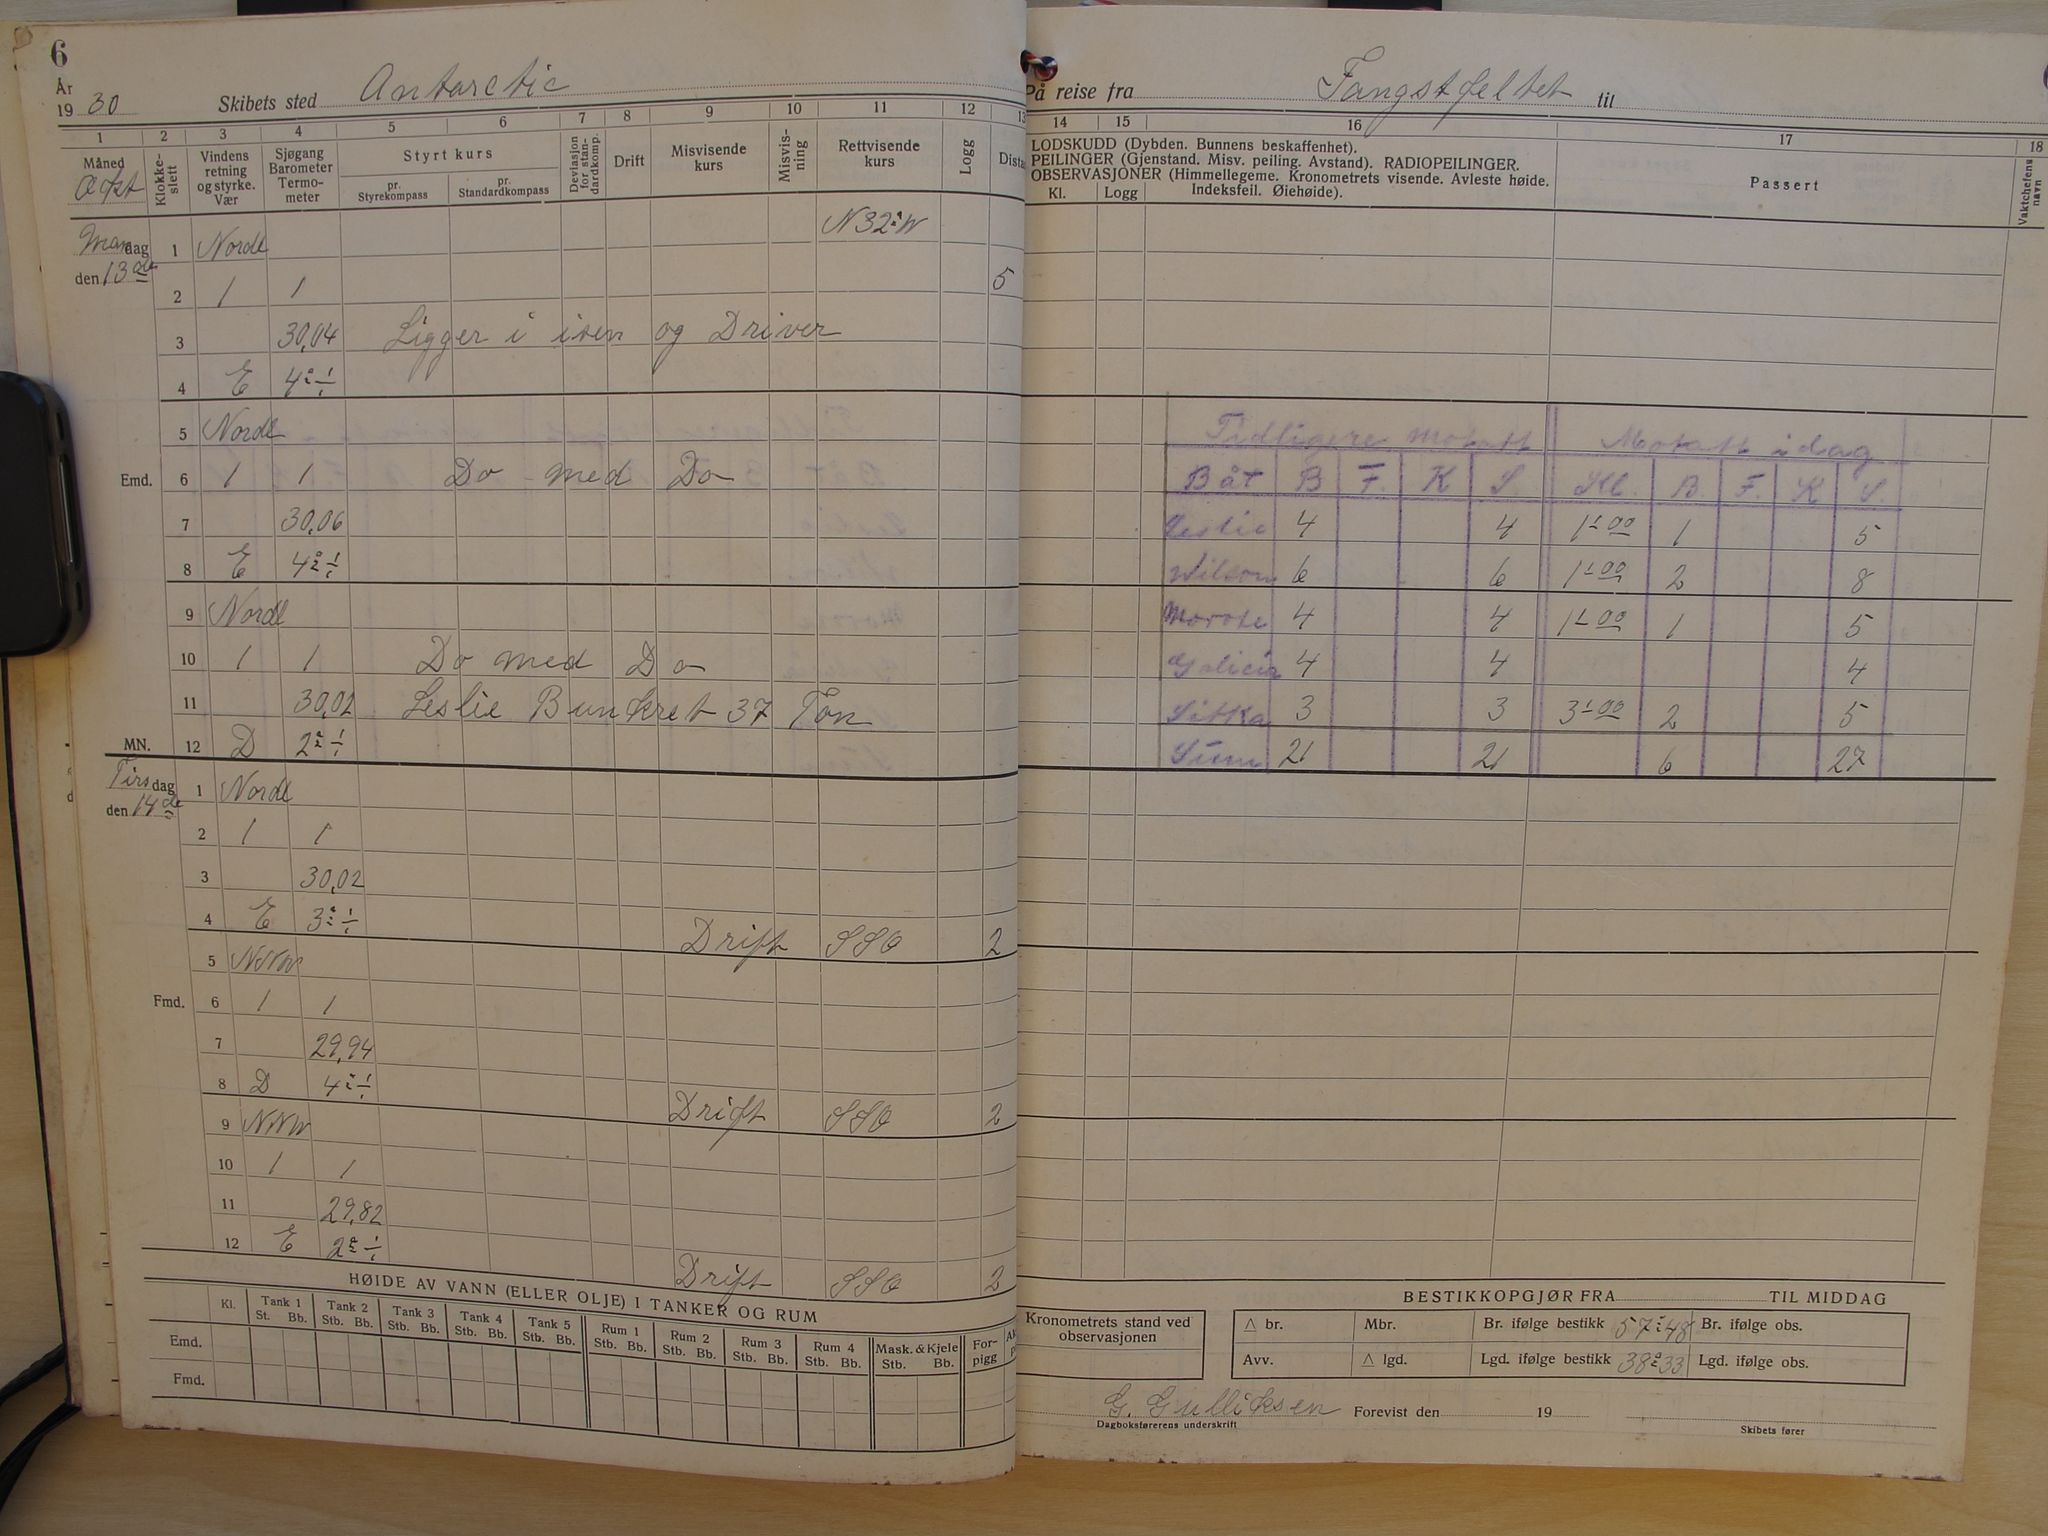 6
År 1930 Skibets sted Antarctic På reise fra Fangstfeltet til
1 2 3 4 5 6 7 8 9 10 11 12 13 14 15 16 17 18
Måned
Klokkeslett
Vindens retning og styrke. Vær
Sjøgang Barometer Termometer
Styrt kurs
pr. Styrekompass
pr. Standardkompass
Deviasjon for standardkomp.
Drift
Misvisende kurs
Misvisning
Rettvisende kurs
Logg
Dista
LODSKUDD (Dybden. Bunnens beskaffenhet).
PEILINGER (Gjenstand. Misv. peiling. Avstand). RADIOPEILINGER.
OBSERVASJONER (Himmellegeme. Kronometrets visende. Avleste høide.
Kl. Logg Indeksfeil. Øiehøide).
Passert
Vaktchefens navn
Mandag 1 Nordl N32°W
den 13de
2 1 1 5
3 30,04 Ligger i isen og Driver
4 E 4°÷
5 Nordl
Emd. 6 1 1 Do med Do
7 30,06
8 E 4°÷
9 Nordl
10 1 1 Do med Do
11 30,02 Leslie Bunkret 37 Ton
MN. 12 D 2°÷
Tidligere Motatt Motatt idag
Båt B F. K S. Kl. B. F. K S.
Leslie 4 4 1-00 1 5
Wilson 6 6 1-00 2 8
Morote 4 4 1-00 1 5
Galicia 4 4 4
Sitka 3 3 3-00 2 5
Sum 21 21 6 27
Tirsdag 1 Nordl
den 14de
2 1 1
3 30,02
4 E 3°÷ Drift SSO 2
5 NNW
Fmd. 6 1 1
7 29,94
8 D 4°÷ Drift SSO 2
9 NNW
10 1 1
11 29,82
12 E 2°÷ Drift SSO 2
HØIDE AV VANN (ELLER OLJE) I TANKER OG RUM
Kl. Tank 1 Tank 2 Tank 3 Tank 4 Tank 5 Rum 1 Rum 2 Rum 3 Rum 4 Mask. & Kjele For-
St. Bb. Stb. Bb. Stb. Bb. Stb. Bb. Stb. Bb. Stb. Bb. Stb. Bb. Stb. Bb. Stb. Bb. Stb. Bb. pigg
Emd.
Fmd.
Kronometrets stand ved observasjonen
BESTIKKOPGJØR FRA TIL MIDDAG
△ br. Mbr. Br. ifølge bestikk 57°48 Br. ifølge obs.
Avv. △ lgd. Lgd. ifølge bestikk 38°33 Lgd. ifølge obs.
G. Gulliksen Forevist den 19
Dagboksførerens underskrift Skibets fører